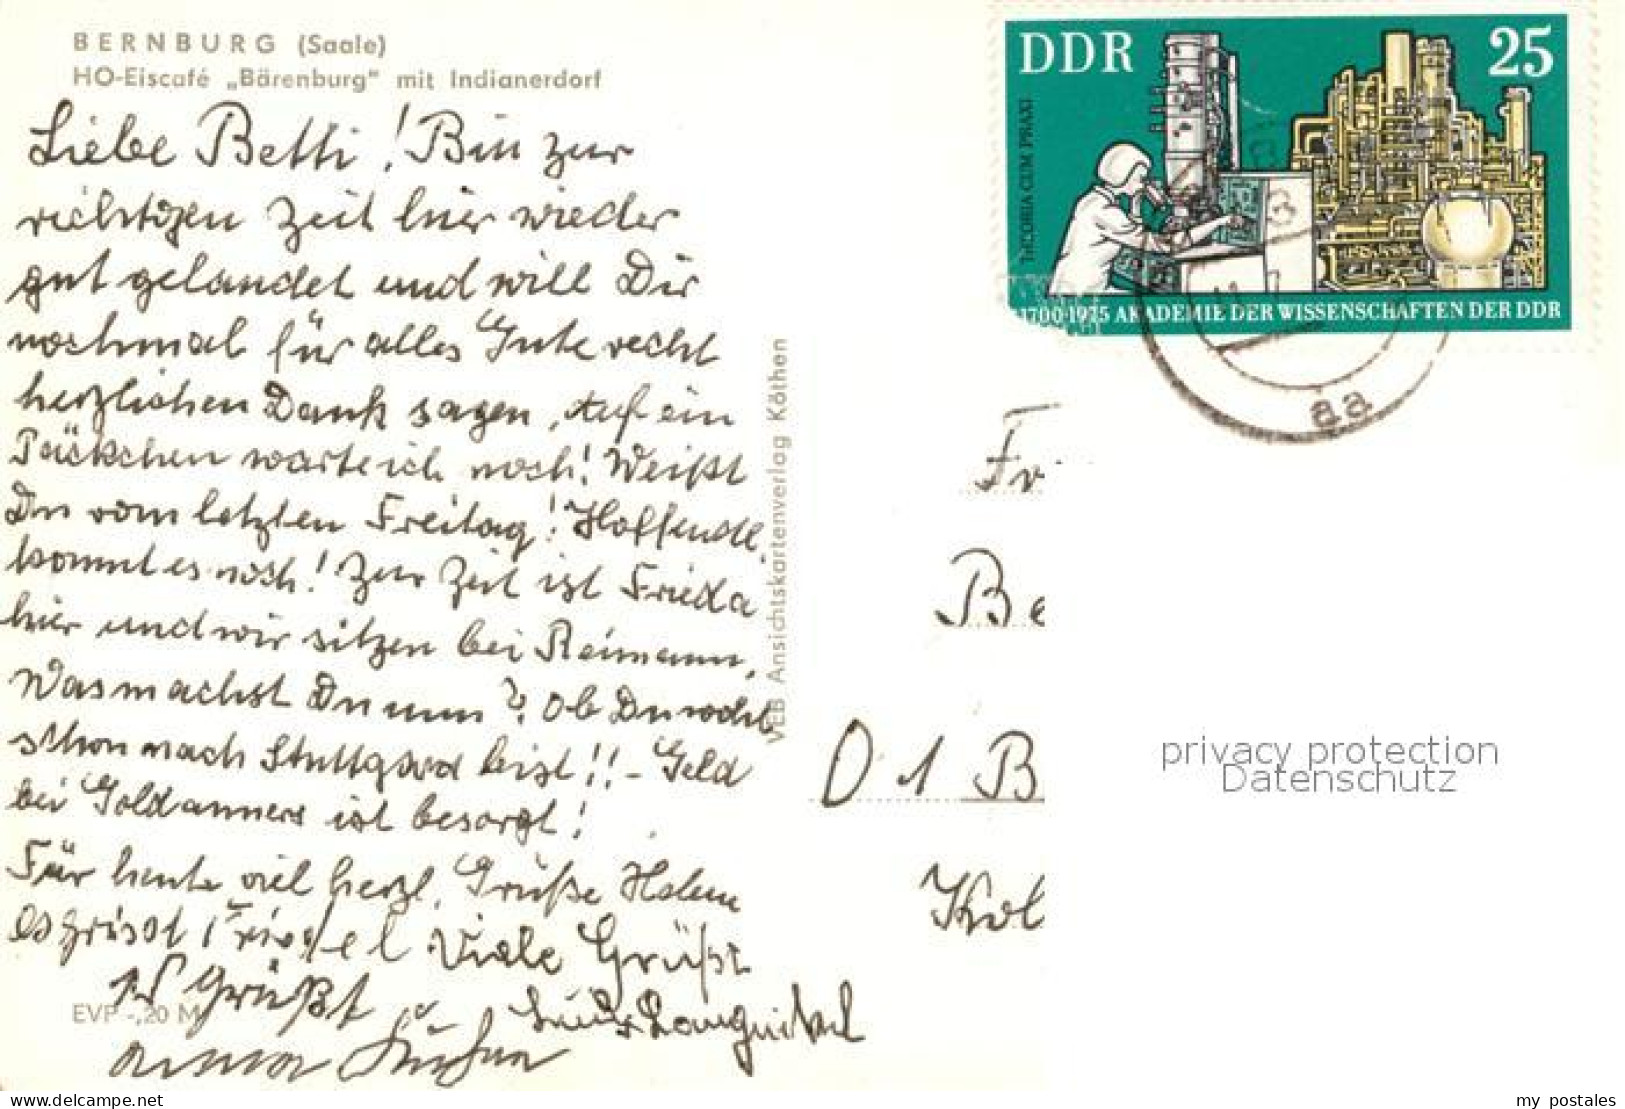 BERNBURG (Saale)
HO-Eiscafé „Bärenburg" mit Indianerdorf
Liebe Betti! Bin zur
richtigen Zeit hier wieder
gut gelandet und will Dir
nochmal für alles Gute recht
herzlichen Dank sagen, Auf ein
Päckchen warte ich noch! Weißt
Du vom letzten Freitag! Hoffendl.
kommt es noch! Zur Zeit ist Frieda
hier und wir sitzen bei Reimann,
Was machst Du nun? Ob Du wohl
schon nach Stuttgard bist!! - Geld
bei Goldanners ist besorgt!
Für heute viel herzl. Grüße Helene
es grüsst Friedel Viele Grüße
Grüßt
EVP -,20 M
VEB Ansichtskartenverlag Köthen
DDR 25
THEORIA CUM PRAXI
1700·1975 AKADEMIE DER WISSENSCHAFTEN DER DDR
aa
Fr
Be
D 1 B
Kol
privacy protection
Datenschutz
Delcampe.net
my_postales